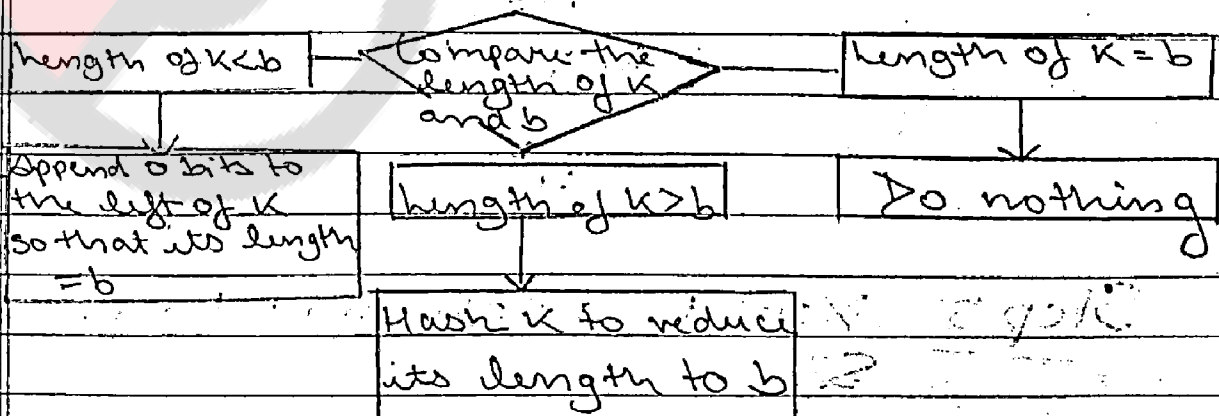 Length of K<b
Compare the
length of K
and b
Length of K = b
Append 0 bits to
the left of K
so that its length
= b
Length of K>b
Do nothing
Hash K to reduce
its length to b